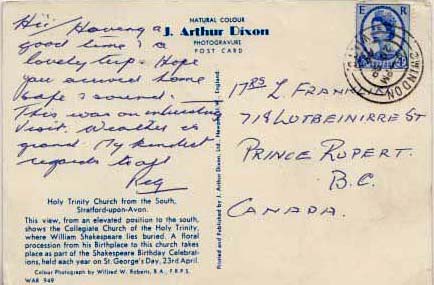 NATURAL COLOUR
J. Arthur Dixon
PHOTOGRAVURE
POST CARD
Hi! Having a
good time & a
lovely trip. Hope
you arrived home
safe & sound.
This was an interesting
visit. Weather is
grand. My kindest
regards to all
Reg
Holy Trinity Church from the South,
Stratford-upon-Avon.
This view, from an elevated position to the south,
shows the Collegiate Church of the Holy Trinity,
where William Shakespeare lies buried. A floral
procession from his Birthplace to this church takes
place as part of the Shakespeare Birthday Celebrat-
ions, held each year on St. George's Day, 23rd April.
Colour Photograph by Wilfred W. Roberts, B.A., F.R.P.S.
WAR 949
Printed and Published by J. Arthur Dixon, Ltd., I.W., England.
E R
SWINDON
PM
MRS L. FRANKLIN
718 LOTBEINIRRE ST
PRINCE RUPERT.
B.C.
CANADA.